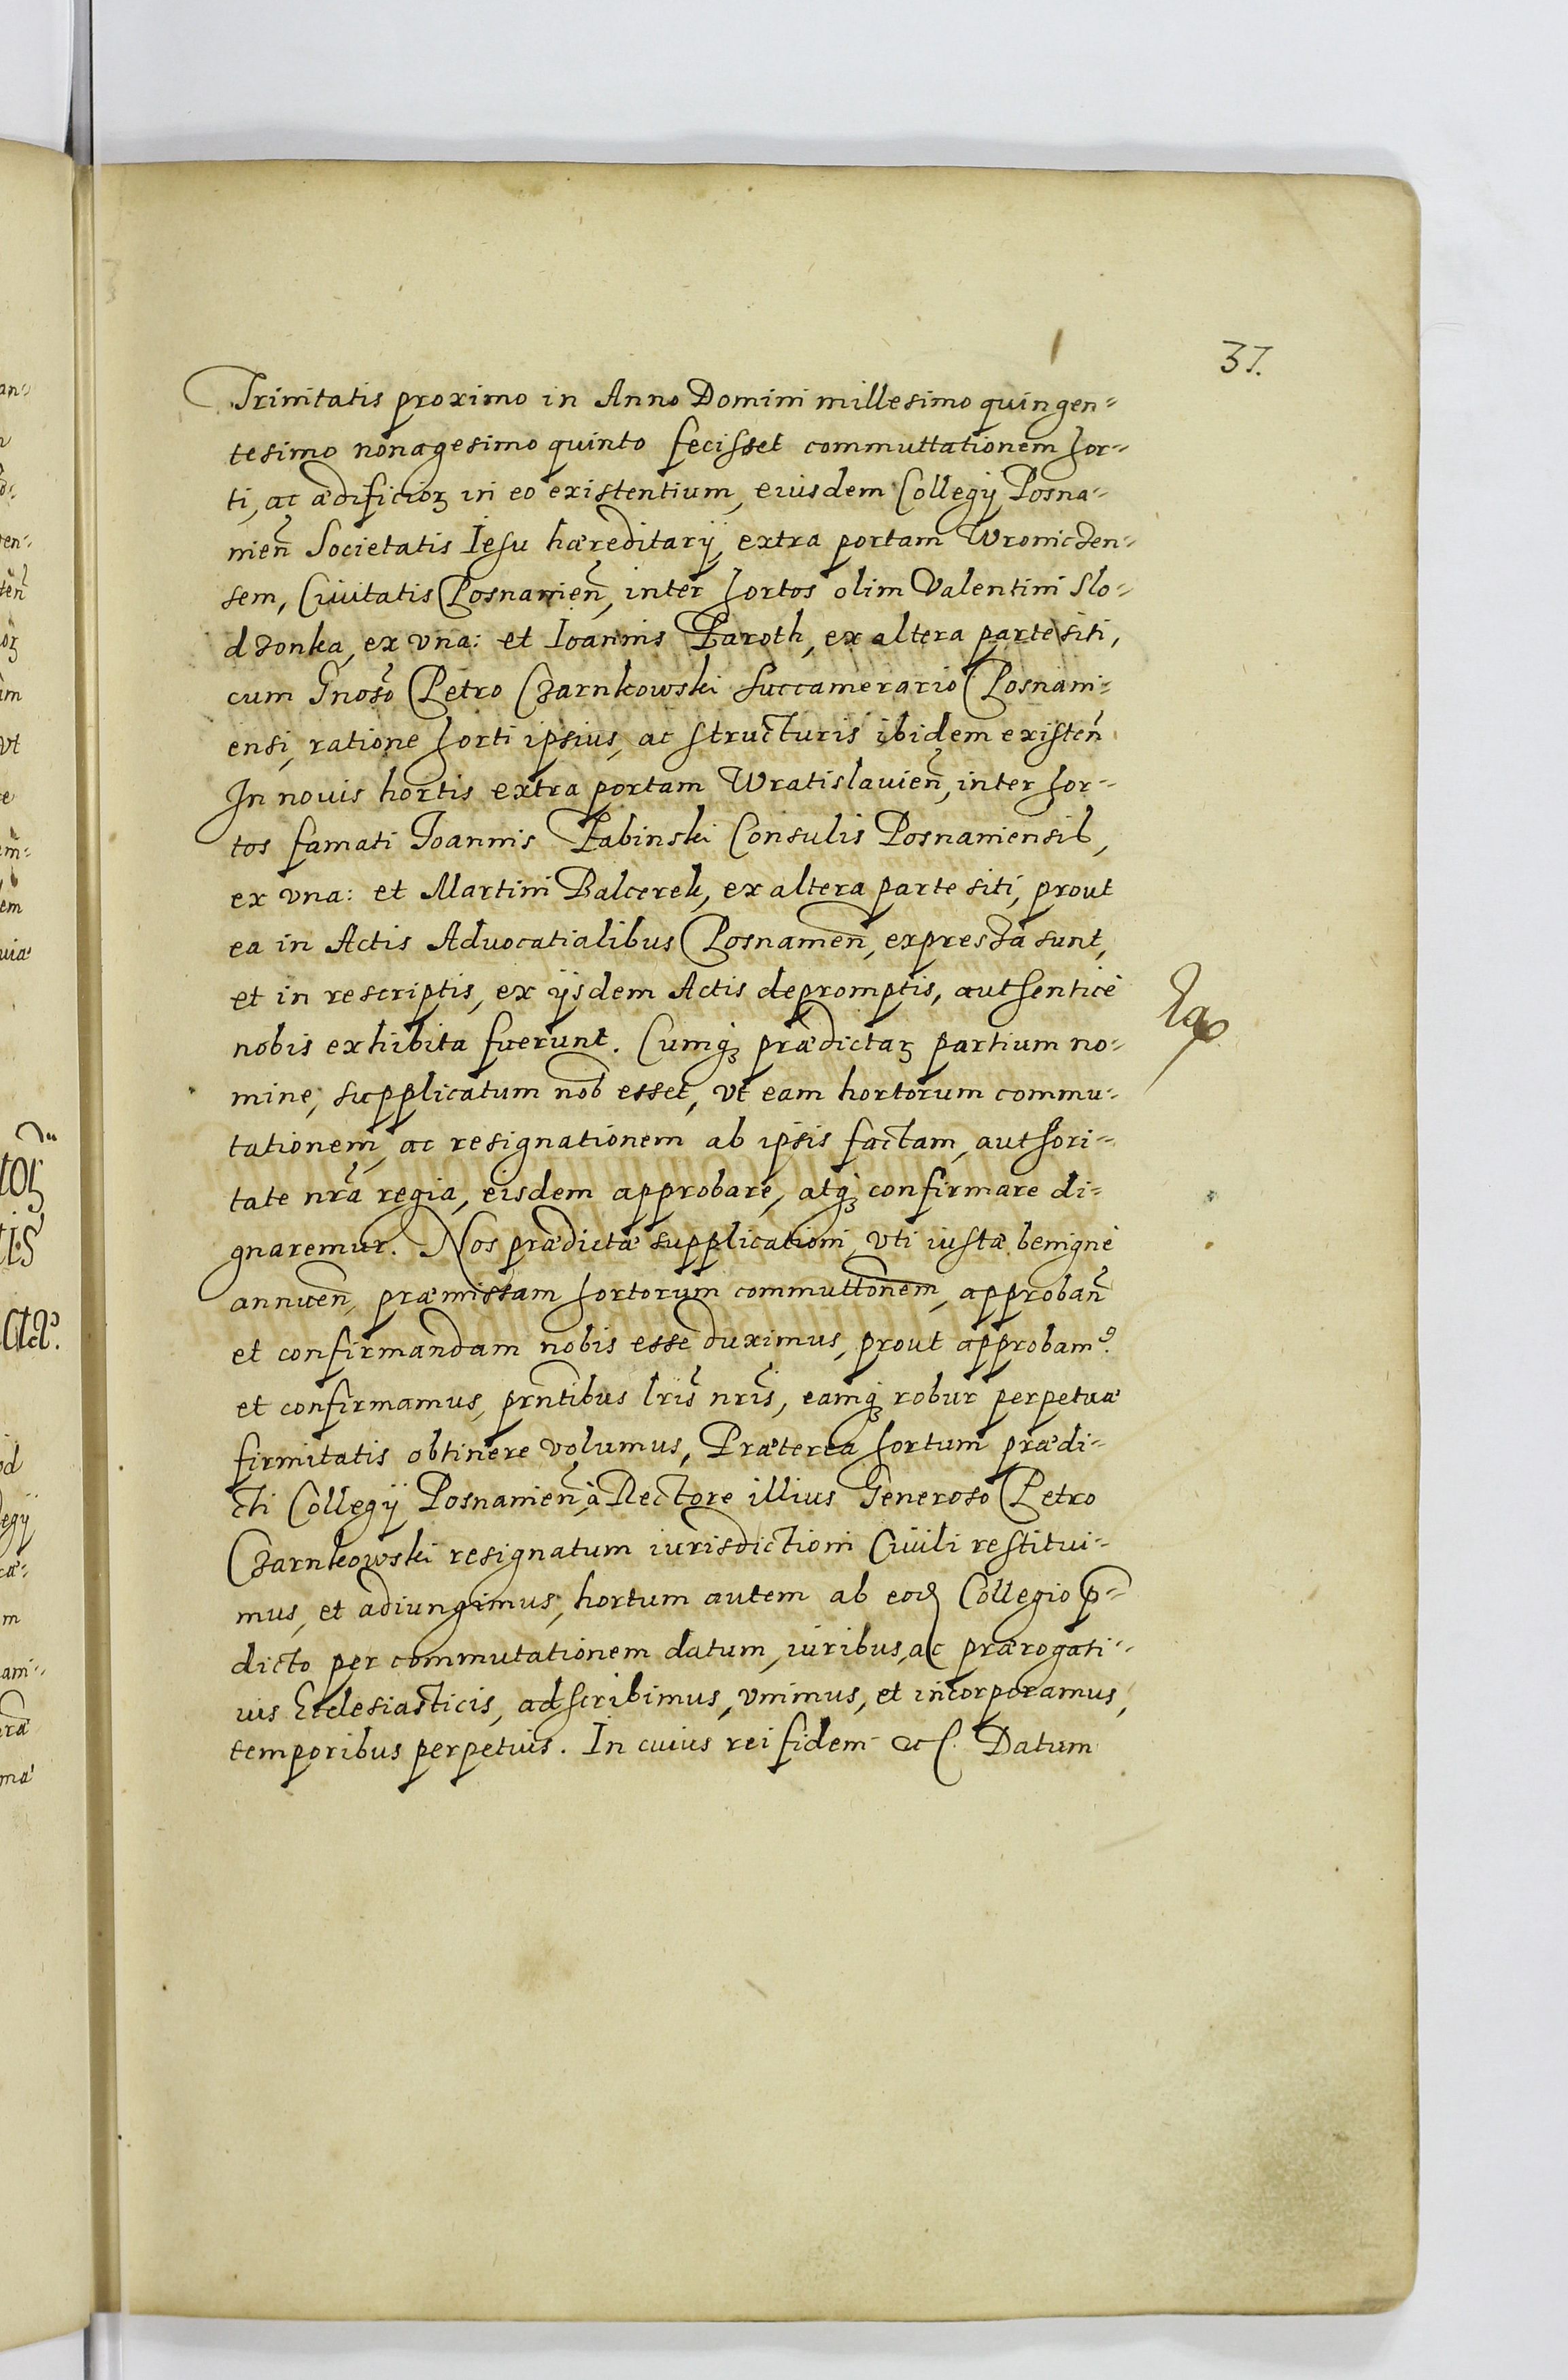 37.
Trinitatis proximo in Anno Domini millesimo quingen=
tesimo nonagesimo quinto fecisset commuttationem hor=
ti, ac ædificioꝝ in eo existentium, eiusdem Collegij Posna=
nien̄ Societatis Iesu hæreditarij, extra portam Wroniczen=
sem, Ciuitatis Posnanien̄, inter hortos olim Valentini Slo=
dzonka, ex vna: et Ioannis Baroth, ex altera parte siti,
cum Gnoso Petro Czarnkowski Succamerario Posnani=
ensi, ratione horti ipsius, ac structuris ibidem existen̄
In nouis hortis extra portam Wratislauien̄, inter hor=
tos famati Joannis Rabinski Consulis Posnaniensis,
ex vna: et Martini Balcerek, ex altera parte siti, prout
ea in Actis Aduocatialibus Posnanien̄, expressa sunt,
et in rescriptis, ex ijsdem Actis depromptis, authenticè
nobis exhibita fuerunt. Cumqꝫ prædictaꝝ partium no=
mine, supplicatum nob esset, vt eam hortorum commu=
tationem, ac resignationem ab ipsis factam, authori=
tate nrã regia, eisdem approbare, atqꝫ confirmare di=
gnaremur. Nos prædictæ supplicationi, vti iustæ benignè
annuen̄, præmissam hortorum commuttonem, approban̄
et confirmandam nobis esse duximus, prout approbamꝰ.
et confirmamus, prn̄tibus lris̄ nris̄, eamqꝫ robur perpetuæ
firmitatis obtinere volumus, Præterea hortum prædi=
cti Collegij Posnanien̄ à Rectore illius Generoso Petro
Czarnkowski resignatum iurisdictioni Ciuili restitui=
mus, et adiungimus, hortum autem ab eod Collegio p̄=
dicto per commutationem datum, iuribus, ac prærogati=
uis Ecclesiasticis, adscribimus, vnimus, et incorporamus,
temporibus perpetuis. In cuius rei fidem etc. Datum